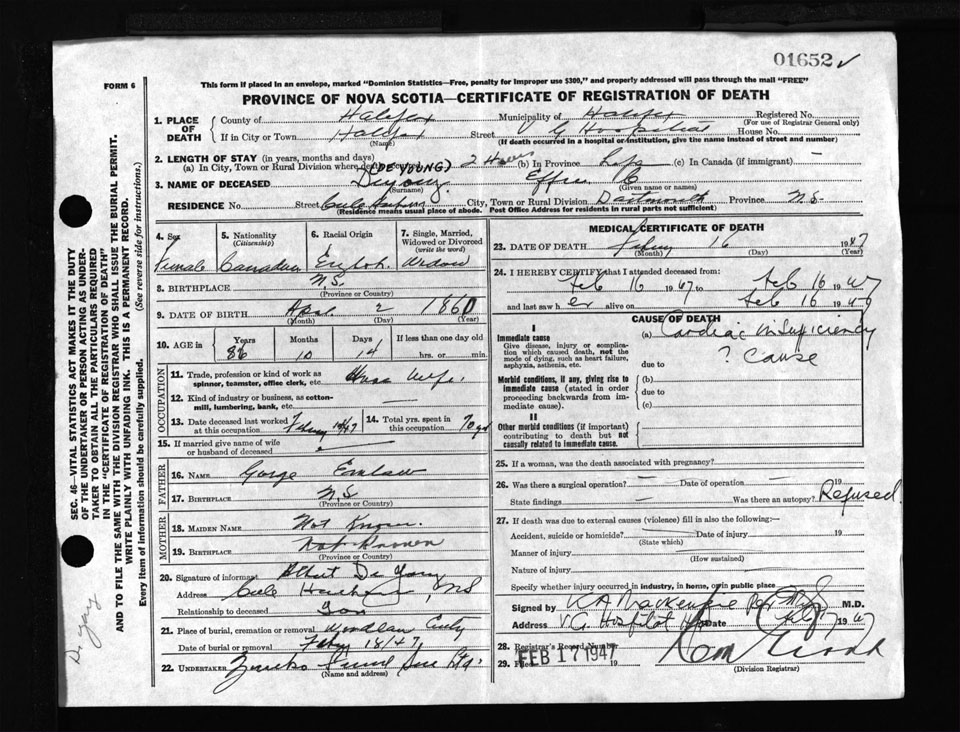 01652 ✓
FORM 6
This form if placed in an envelope, marked "Dominion Statistics—Free, penalty for improper use $300," and properly addressed will pass through the mail "FREE"
PROVINCE OF NOVA SCOTIA—CERTIFICATE OF REGISTRATION OF DEATH
1. PLACE OF DEATH
County of Halifax Municipality of Halifax Registered No.
(For use of Registrar General only)
If in City or Town Halifax Street V G Hospital House No.
(Name) (If death occurred in a hospital or institution, give the name instead of street and number)
2. LENGTH OF STAY (in years, months and days)
(a) In City, Town or Rural Division where death occurred 2 Hours (b) In Province Life (c) In Canada (if immigrant) —
(DE YOUNG)
3. NAME OF DECEASED Deyoung Effie C
(Surname) (Given name or names)
RESIDENCE No. Street Cole Harbour City, Town or Rural Division Dartmouth Province N.S.
(Residence means usual place of abode. Post Office Address for residents in rural parts not sufficient)
4. Sex
Female
5. Nationality
(Citizenship)
Canadian
6. Racial Origin
English
7. Single, Married, Widowed or Divorced
(write the word)
Widow
8. BIRTHPLACE N.S.
(Province or Country)
9. DATE OF BIRTH April 2 1860
(Month) (Day) (Year)
10. AGE in Years Months Days If less than one day old
86 10 14 hrs. or min.
OCCUPATION
11. Trade, profession or kind of work as spinner, teamster, office clerk, etc. House Wife
12. Kind of industry or business, as cotton-mill, lumbering, bank, etc. —
13. Date deceased last worked at this occupation 1947
14. Total yrs. spent in this occupation 70 yrs
15. If married give name of wife or husband of deceased —
FATHER
16. NAME George
17. BIRTHPLACE N.S
MOTHER
18. MAIDEN NAME Not Known
19. BIRTHPLACE Not Known
(Province or Country)
20. Signature of informant Albert De Young
Address Cole Harbour, NS
Relationship to deceased Son
21. Place of burial, cremation or removal Woodlawn
Date of burial or removal Feby 18/47
22. UNDERTAKER
(Name and address)
MEDICAL CERTIFICATE OF DEATH
23. DATE OF DEATH 16 1947
(Month) (Day) (Year)
24. I HEREBY CERTIFY that I attended deceased from:
Feb 16 1947 to Feb 16 1947
and last saw her alive on Feb 16 1947
CAUSE OF DEATH
I
Immediate cause
Give disease, injury or complication which caused death, not the mode of dying, such as heart failure, asphyxia, asthenia, etc.
(a) Cardiac insuficiency
? Cause
due to
Morbid conditions, if any, giving rise to immediate cause (stated in order proceeding backwards from immediate cause).
(b)
due to
(c)
II
Other morbid conditions (if important) contributing to death but not causally related to immediate cause.
25. If a woman, was the death associated with pregnancy?
26. Was there a surgical operation? — Date of operation — 19
State findings — Was there an autopsy? Refused.
27. If death was due to external causes (violence) fill in also the following:—
Accident, suicide or homicide? Date of injury 19
(State which)
Manner of injury
(How sustained)
Nature of injury
Specify whether injury occurred in industry, in home, or in public place
Signed by V.A. Mackenzie M.D.
Address V.G. Hospital Date Feb 17 1947
28. Registrar's Record Number
29. Filed FEB 17 1947 19
(Division Registrar)
SEC. 46—VITAL STATISTICS ACT MAKES IT THE DUTY
OF THE UNDERTAKER OR PERSON ACTING AS UNDER-
TAKER TO OBTAIN ALL THE PARTICULARS REQUIRED
IN THE "CERTIFICATE OF REGISTRATION OF DEATH"
AND TO FILE THE SAME WITH THE DIVISION REGISTRAR WHO SHALL ISSUE THE BURIAL PERMIT.
WRITE PLAINLY WITH UNFADING INK. THIS IS A PERMANENT RECORD.
Every item of information should be carefully supplied. (See reverse side for instructions.)